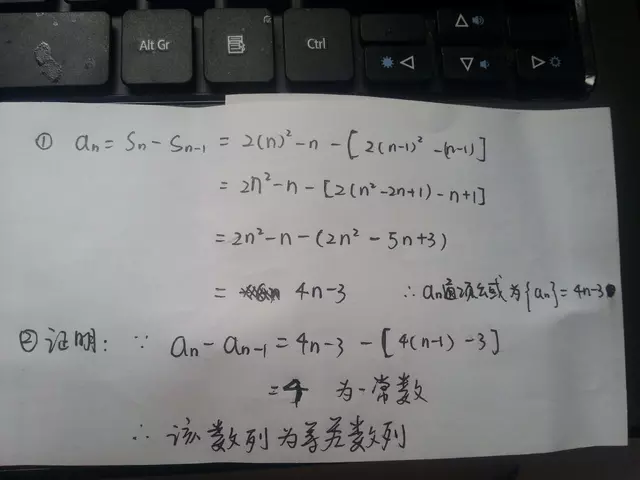 Alt Gr
Ctrl
① an = Sn - Sn-1 = 2(n)² - n - [2(n-1)² - (n-1)]
= 2n² - n - [2(n² - 2n+1) - n+1]
= 2n² - n - (2n² - 5n+3)
= 4n-3 ∴ an通项公式为{an} = 4n-3
②证明: ∵ an - an-1 = 4n-3 - [4(n-1) - 3]
= 4 为一常数
∴ 该数列为等差数列